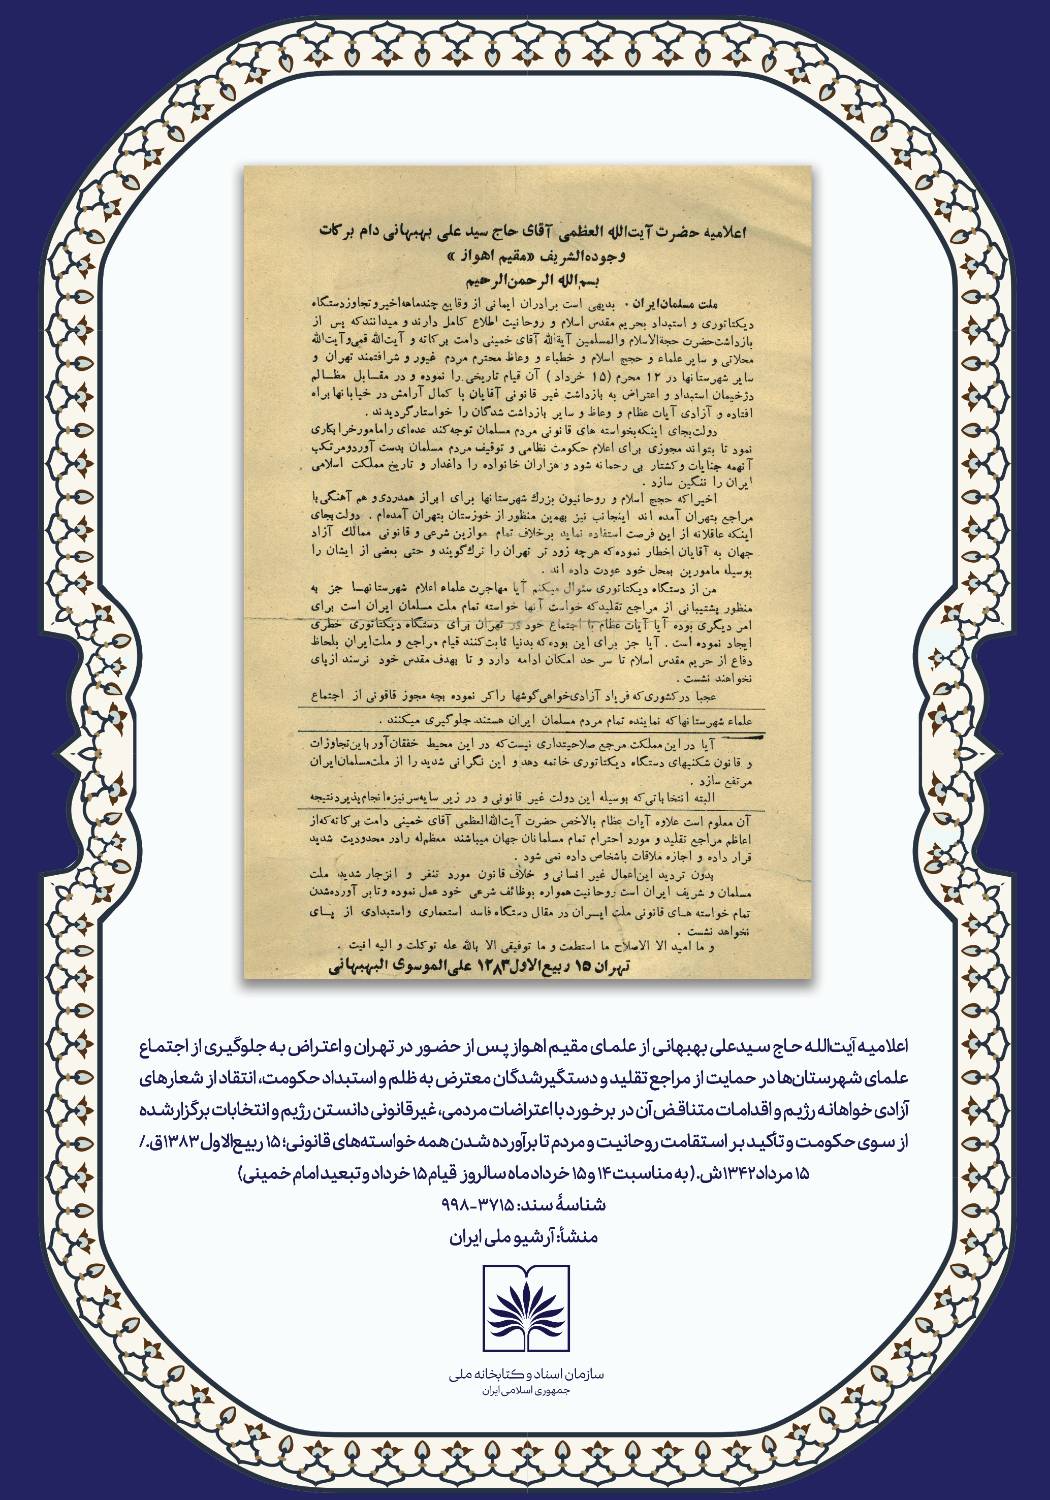 اعلامیه حضرت آیت‌الله العظمی آقای حاج سید علی بهبهانی دام برکات
وجوده‌الشریف «مقیم اهواز»
بسم‌الله الرحمن‌الرحیم
ملت مسلمان ایران . بدیهی است برادران ایمانی از وقایع چندماهه اخیر و تجاوز دستگاه
دیکتاتوری و استبداد بحریم مقدس اسلام و روحانیت اطلاع کامل دارند و میدانند که پس از
بازداشت حضرت حجةالاسلام والمسلمین آیةالله آقای خمینی دامت برکاته و آیت‌الله قمی و آیت‌الله
محلاتی و سایر علماء و حجج اسلام و خطباء و وعاظ محترم مردم غیور و شرافتمند تهران و
سایر شهرستانها در ۱۲ محرم (۱۵ خرداد) آن قیام تاریخی را نموده و در مقابل مظالم
دژخیمان استبداد و اعتراض به بازداشت غیر قانونی آقایان با کمال آرامش در خیابانها براه
افتاده و آزادی آیات عظام و وعاظ و سایر بازداشت شدگان را خواستار گردیدند .
دولت بجای اینکه بخواسته های قانونی مردم مسلمان توجه کند عده‌ای را مامور خرابکاری
نمود تا بتواند مجوزی برای اعلام حکومت نظامی و توقیف مردم مسلمان بدست آورد و مرتکب
آنهمه جنایات و کشتار بی رحمانه شود و هزاران خانواده را داغدار و تاریخ مملکت اسلامی
ایران را ننگین سازد .
اخیرا که حجج اسلام و روحانیون بزرگ شهرستانها برای ابراز همدردی و هم آهنگی با
مراجع بتهران آمده اند اینجانب نیز بهمین منظور از خوزستان بتهران آمده‌ام . دولت بجای
اینکه عاقلانه از این فرصت استفاده نماید برخلاف تمام موازین شرعی و قانونی ممالک آزاد
جهان به آقایان اخطار نموده که هرچه زود تر تهران را ترک گویند و حتی بعضی از ایشان را
بوسیله مامورین بمحل خود عودت داده اند .
من از دستگاه دیکتاتوری سئوال میکنم آیا مهاجرت علماء اعلام شهرستانها جز به
منظور پشتیبانی از مراجع تقلید که خواست آنها خواسته تمام ملت مسلمان ایران است برای
امر دیگری بوده آیا آیات عظام با اجتماع خود در تهران برای دستگاه دیکتاتوری خطری
ایجاد نموده است . آیا جز برای این بوده که بدنیا ثابت کنند قیام مراجع و ملت ایران بلحاظ
دفاع از حریم مقدس اسلام تا سر حد امکان ادامه دارد و تا بهدف مقدس خود نرسند از پای
نخواهند نشست .
عجبا در کشوری که فریاد آزادی خواهی گوشها را کر نموده بچه مجوز قانونی از اجتماع
علماء شهرستانها که نماینده تمام مردم مسلمان ایران هستند جلوگیری میکنند .
آیا در این مملکت مرجع صلاحیتداری نیست که در این محیط خفقان آور باین تجاوزات
و قانون شکنیهای دستگاه دیکتاتوری خاتمه دهد و این نگرانی شدید را از ملت مسلمان ایران
مرتفع سازد .
البته انتخاباتی که بوسیله این دولت غیر قانونی و در زیر سایه سرنیزه انجام پذیرد نتیجه
آن معلوم است علاوه آیات عظام بالاخص حضرت آیت‌الله‌العظمی آقای خمینی دامت برکاته که از
اعاظم مراجع تقلید و مورد احترام تمام مسلمانان جهان میباشند معظم‌له را در محدودیت شدید
قرار داده و اجازه ملاقات باشخاص داده نمی شود .
بدون تردید این اعمال غیر انسانی و خلاف قانون مورد تنفر و انزجار شدید ملت
مسلمان و شریف ایران است روحانیت همواره بوظائف شرعی خود عمل نموده و تا بر آورده شدن
تمام خواسته های قانونی ملت ایران در مقابل دستگاه فاسد استعماری و استبدادی از پای
نخواهد نشست .
و ما امید الا الاصلاح ما استطعت و ما توفیقی الا بالله عله توکلت و الیه انیت .
تهران ۱۵ ربیع‌الاول ۱۲۸۳ علی‌الموسوی البهبهانی
اعلامیه آیت‌الله حاج سیدعلی بهبهانی از علمای مقیم اهواز پس از حضور در تهران و اعتراض به جلوگیری از اجتماع
علمای شهرستان‌ها در حمایت از مراجع تقلید و دستگیرشدگان معترض به ظلم و استبداد حکومت، انتقاد از شعارهای
آزادی خواهانه رژیم و اقدامات متناقض آن در برخورد با اعتراضات مردمی، غیرقانونی دانستن رژیم و انتخابات برگزار شده
از سوی حکومت و تأکید بر استقامت روحانیت و مردم تا برآورده شدن همه خواسته‌های قانونی؛ ۱۵ ربیع‌الاول ۱۳۸۳ق./
۱۵ مرداد ۱۳۴۲ش. (به مناسبت ۱۴ و ۱۵ خرداد ماه سالروز قیام ۱۵ خرداد و تبعید امام خمینی)
شناسهٔ سند: ۳۷۱۵-۹۹۸
منشأ: آرشیو ملی ایران
سازمان اسناد و کتابخانه ملی
جمهوری اسلامی ایران